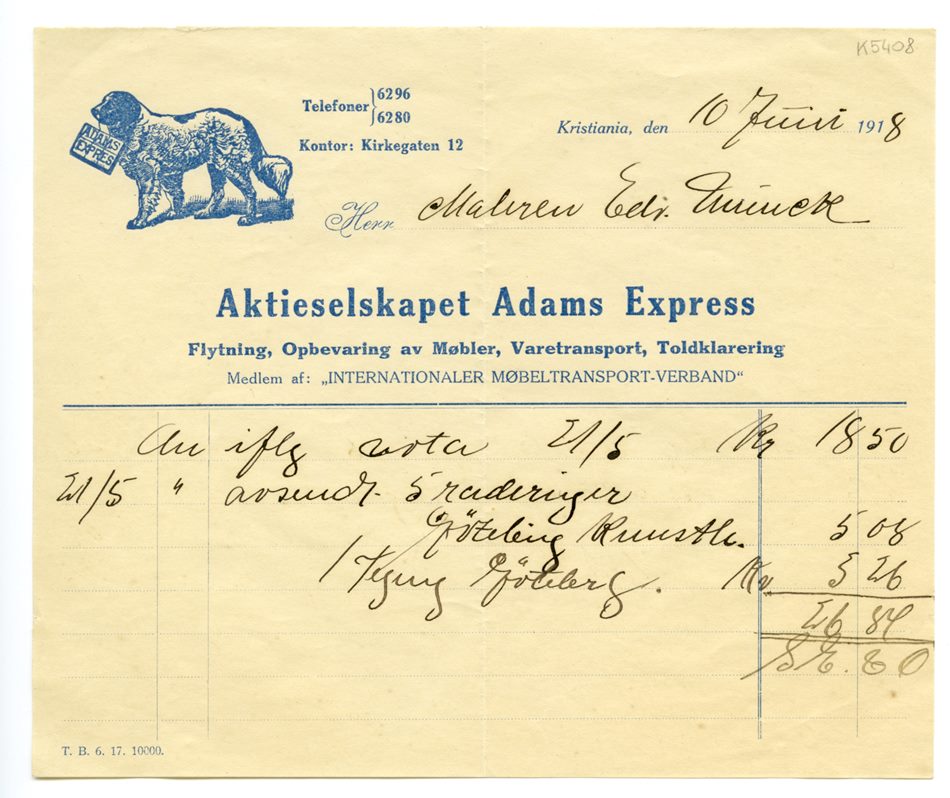 K5408
ADAMS
EXPRES
Telefoner } 6296
6280
Kontor: Kirkegaten 12
Kristiania, den 10 Juni 1918
Herr Maleren Edv. Munck
Aktieselskapet Adams Express
Flytning, Opbevaring av Møbler, Varetransport, Toldklarering
Medlem af: „INTERNATIONALER MØBELTRANSPORT-VERBAND“
An iflg nota 21/5 Kr 18 50
21/5 " avsendt 5 raderinger
Göteborg Kunsth. 5 08
1 Göteberg. Kr. 3 26
26 84
S. E. & O
T. B. 6. 17. 10000.